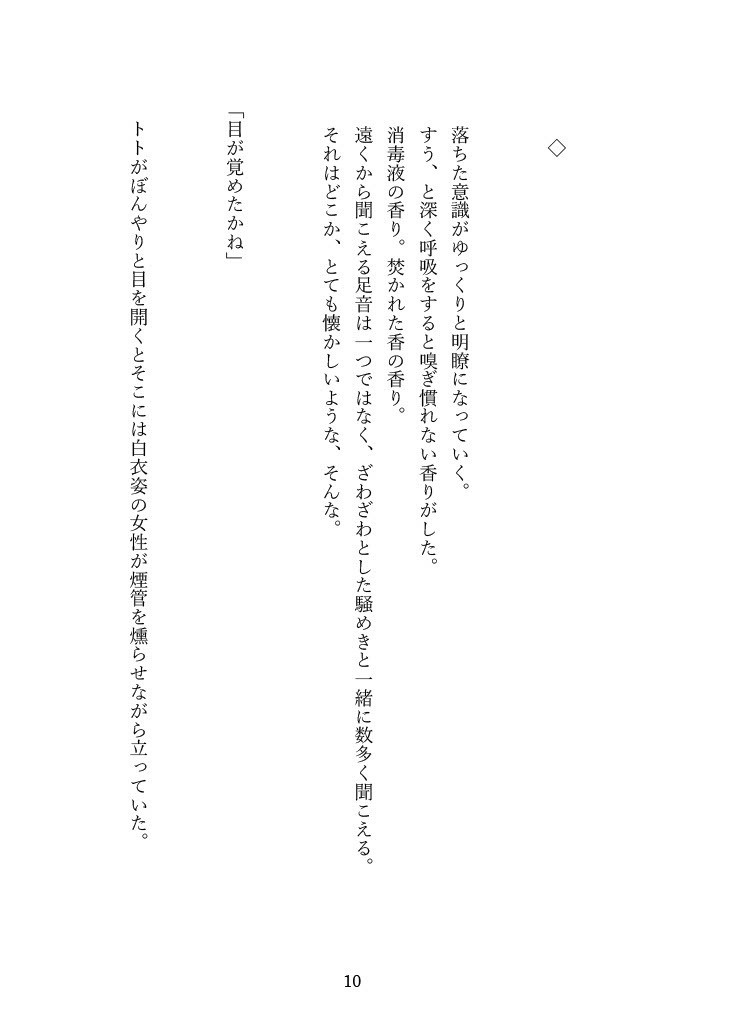 ◇
落ちた意識がゆっくりと明瞭になっていく。
すう、と深く呼吸をすると嗅ぎ慣れない香りがした。
消毒液の香り。焚かれた香の香り。
遠くから聞こえる足音は一つではなく、ざわざわとした騒めきと一緒に数多く聞こえる。
それはどこか、とても懐かしいような、そんな。
「目が覚めたかね」
トトがぼんやりと目を開くとそこには白衣姿の女性が煙管を燻らせながら立っていた。
10